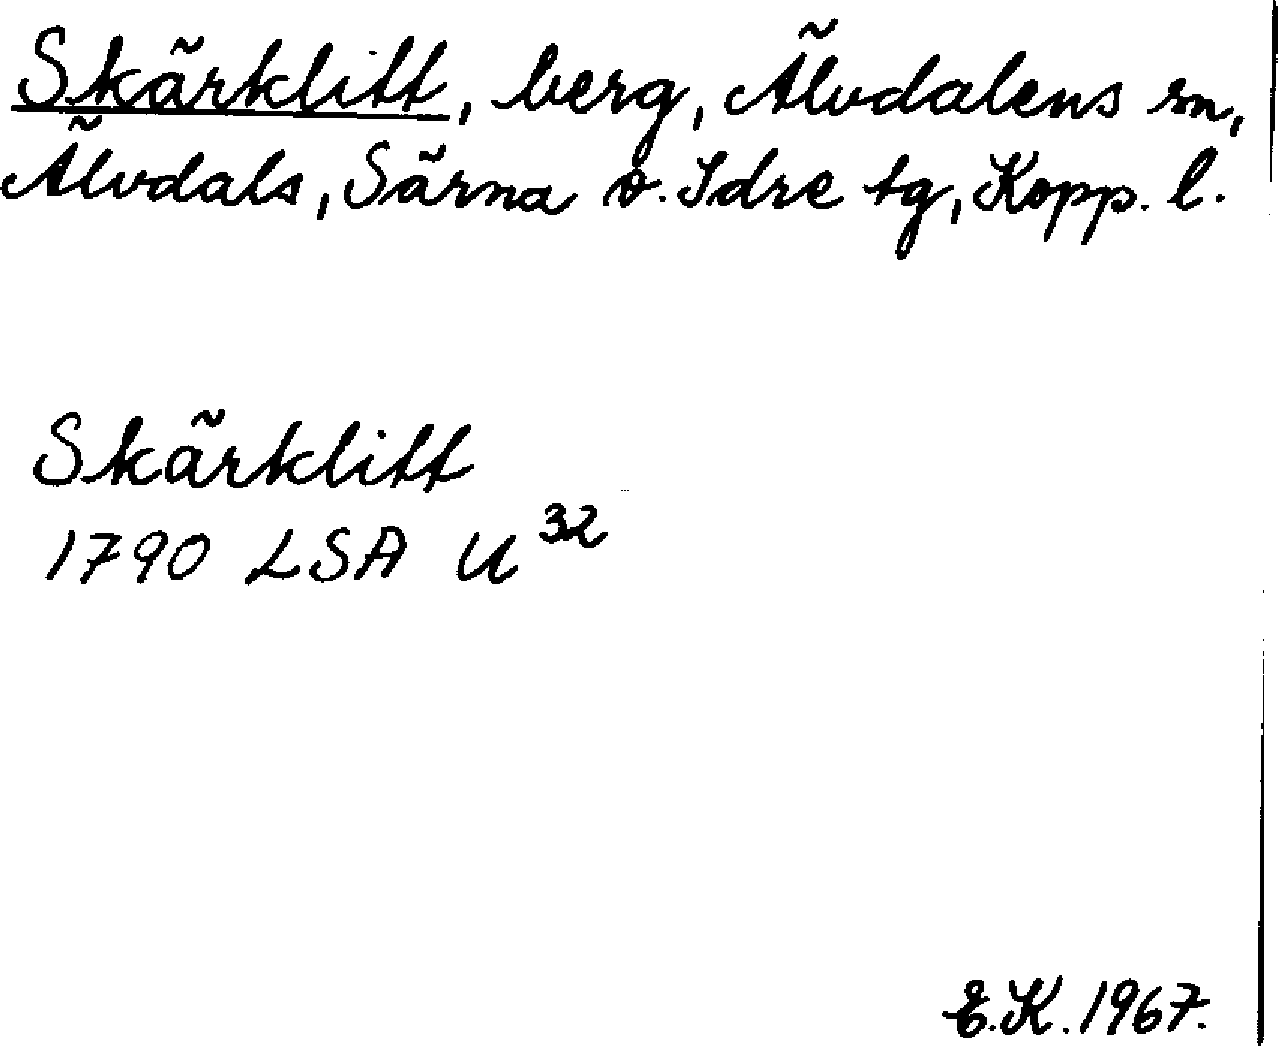 Skärklitt, berg, Älvdalens sn,
Älvdals, Särna o. Idre tg, Kopp. l.
Skärklitt
1790 LSA U³²
E.K. 1967.